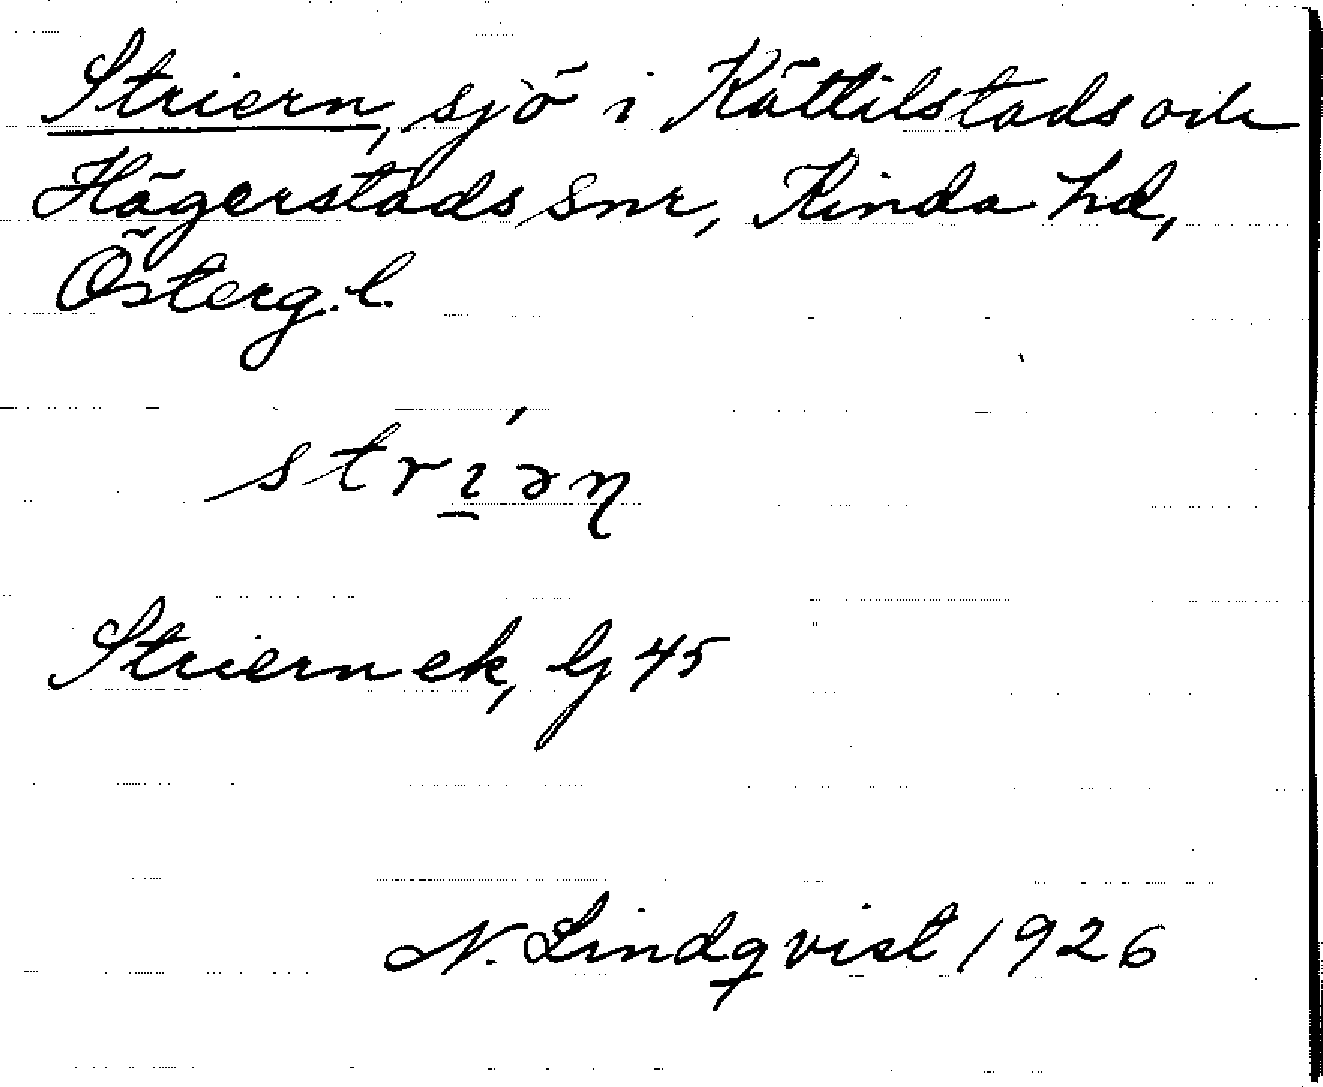 Striern, sjö i Kättilstads och
Hägerstads snr, Kinda hd,
Österg. l.
strɩ̱́əɳ
Striernek, Gj 45
N. Lindqvist 1926